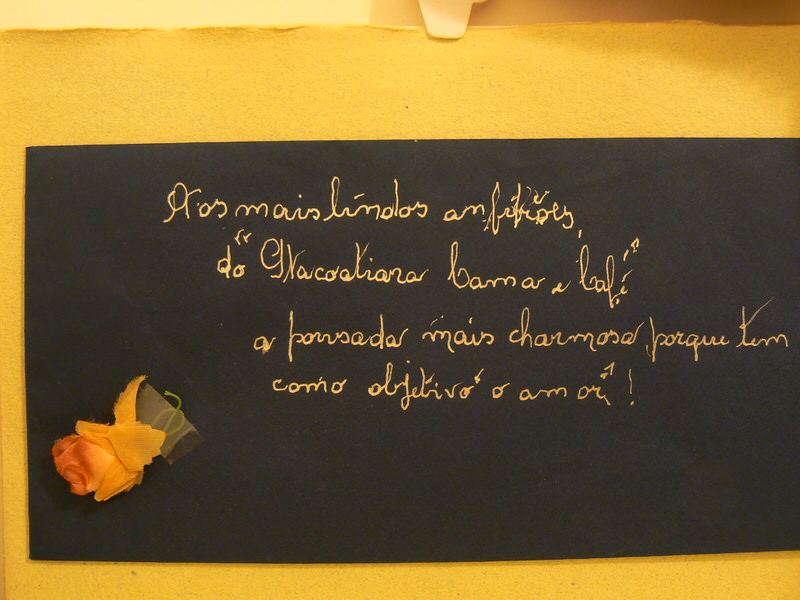 Aos mais lindos anfitriões,
do "Itacoatiara Cama e Café"
a pousada mais charmosa, porque tem
como objetivo "o amor"!